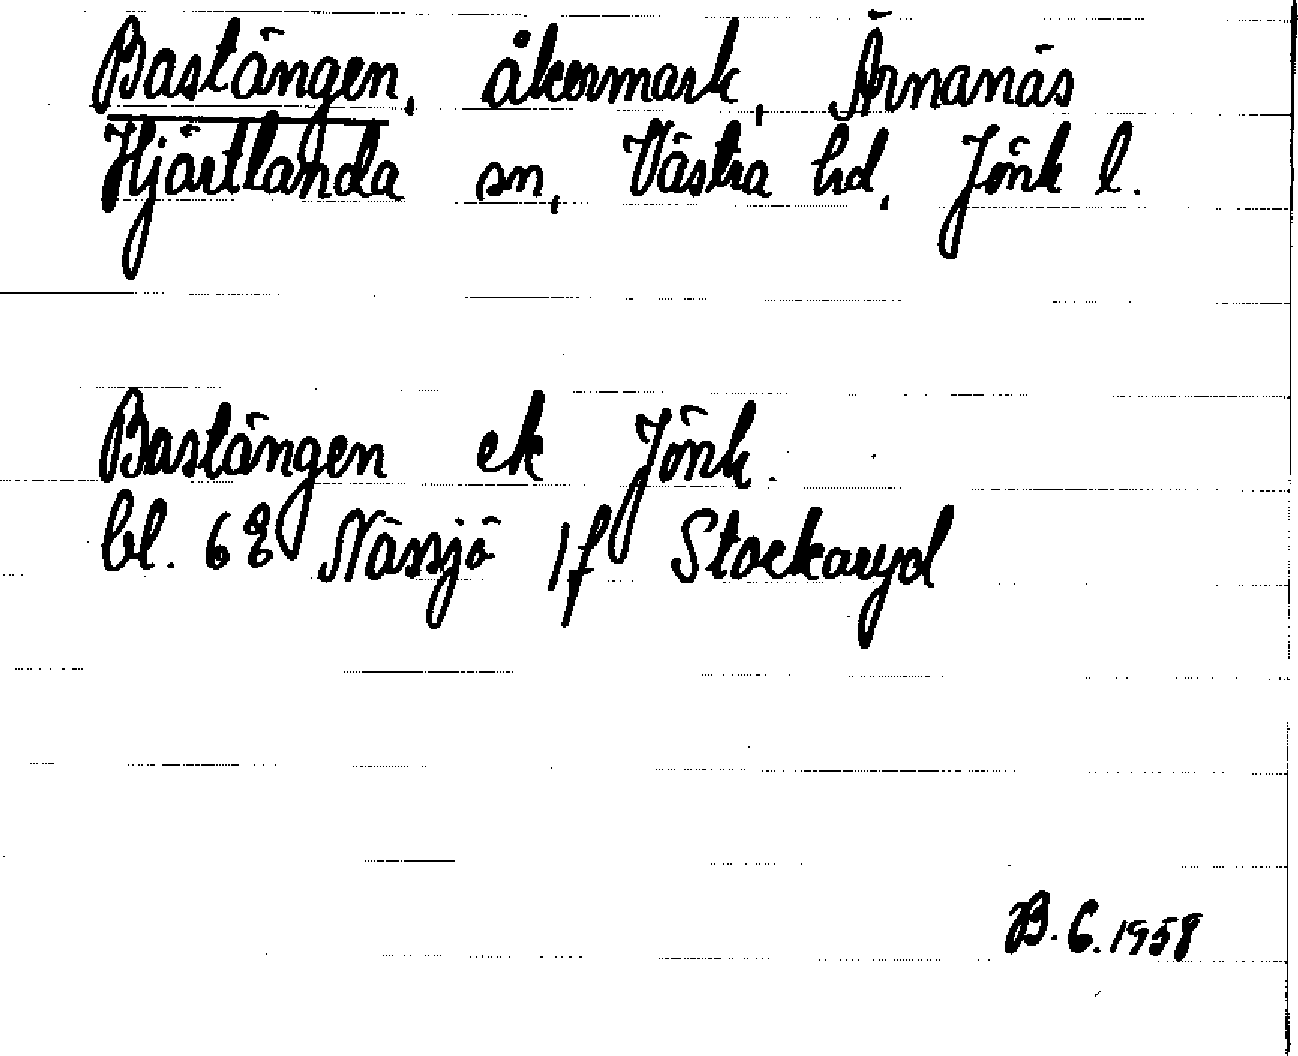 Bastängen, åkermark, Ärnanäs
Hjärtlanda sn, Västra hd, Jönk l.
Bastängen ek Jönk.
bl. 6E Nässjö 1f Stockaryd
B.C. 1958